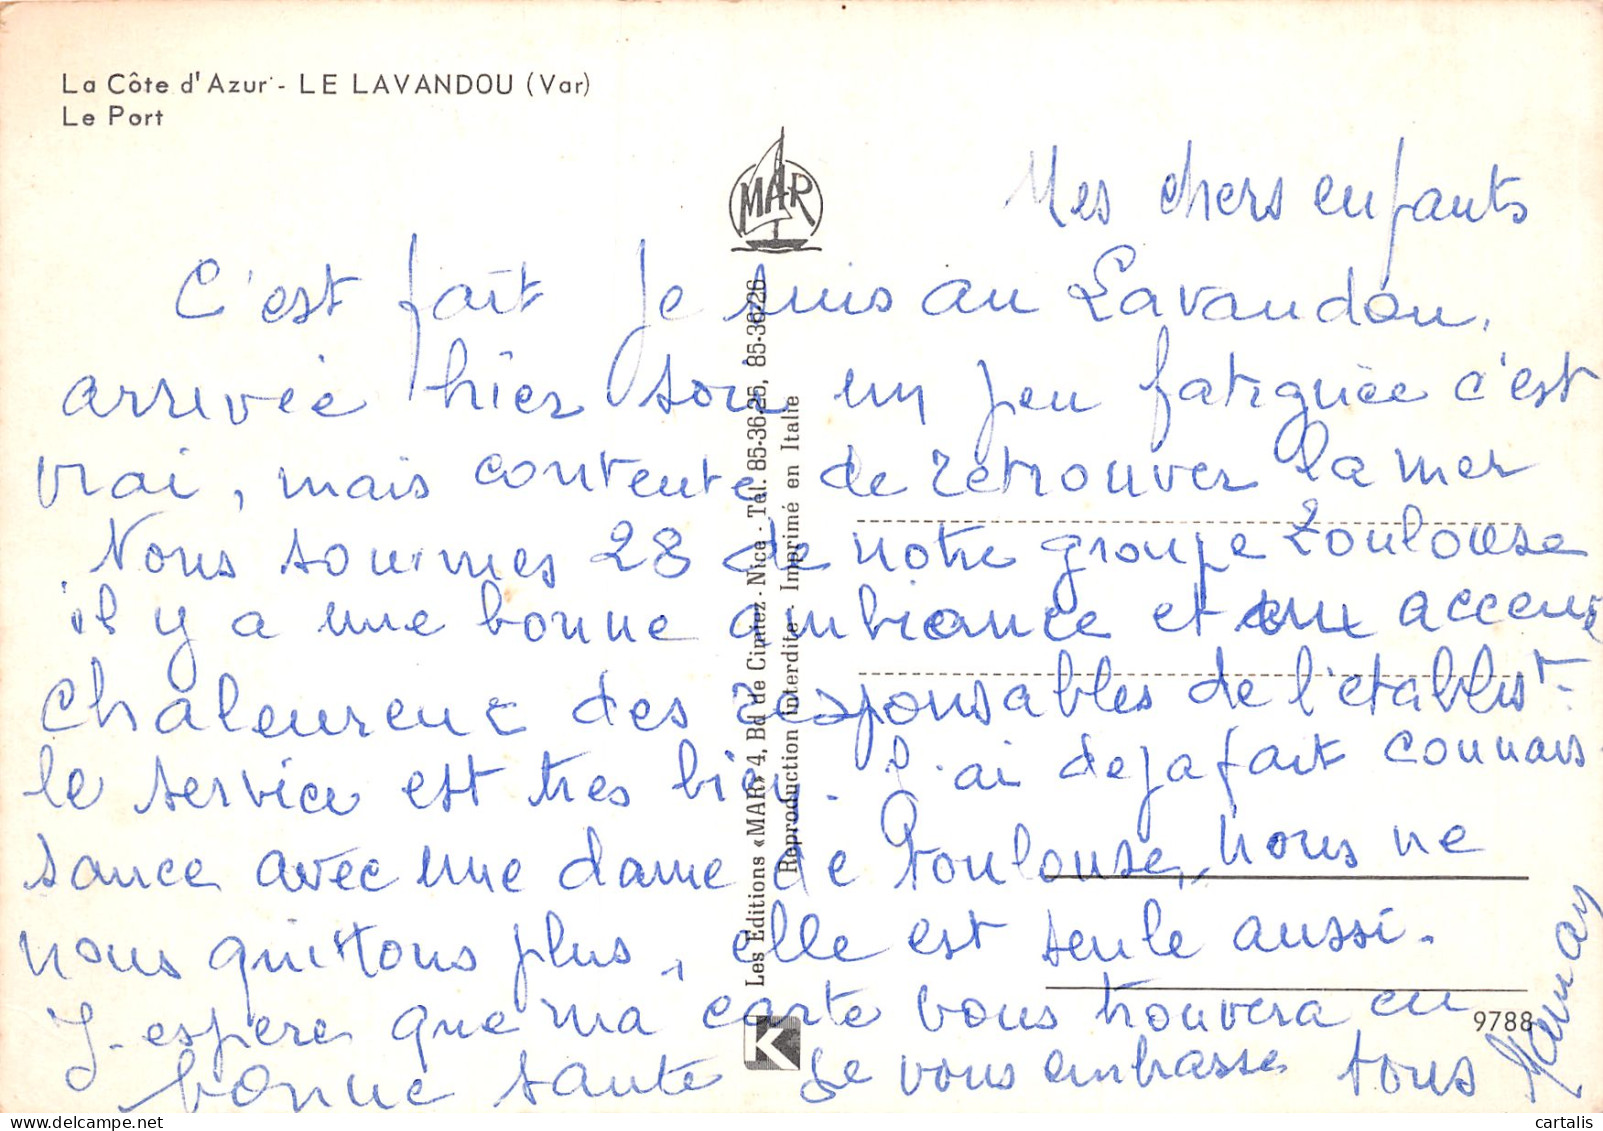 La Côte d'Azur - LE LAVANDOU (Var)
Le Port
MAR
Mes chers enfants
C'est fait je suis au Lavandou.
arrivée hier soir un peu fatiguée c'est
vrai, mais contente de retrouver la mer
Nous sommes 28 de notre groupe Toulouse
il y a une bonne ambiance et un accueil
chaleureux des responsables de l'établist-
le service est très bien. J'ai déja fait connais
sance avec une dame de Toulouse, nous ne
nous quittons plus, elle est seule aussi.
J'espère que ma carte vous trouvera en
bonne santé je vous embrasse tous
Maman
Les Editions «MAR» 4, Bd de Cimiez - Nice - Tél. 85-36-25, 85-36-26
Reproduction interdite - Imprimé en Italie
K
9788
cartalis